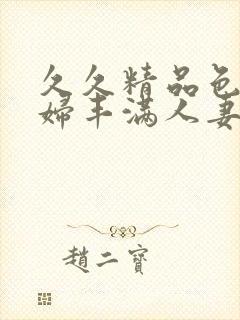 久久精品色
婦丰满人妻
趙二寶